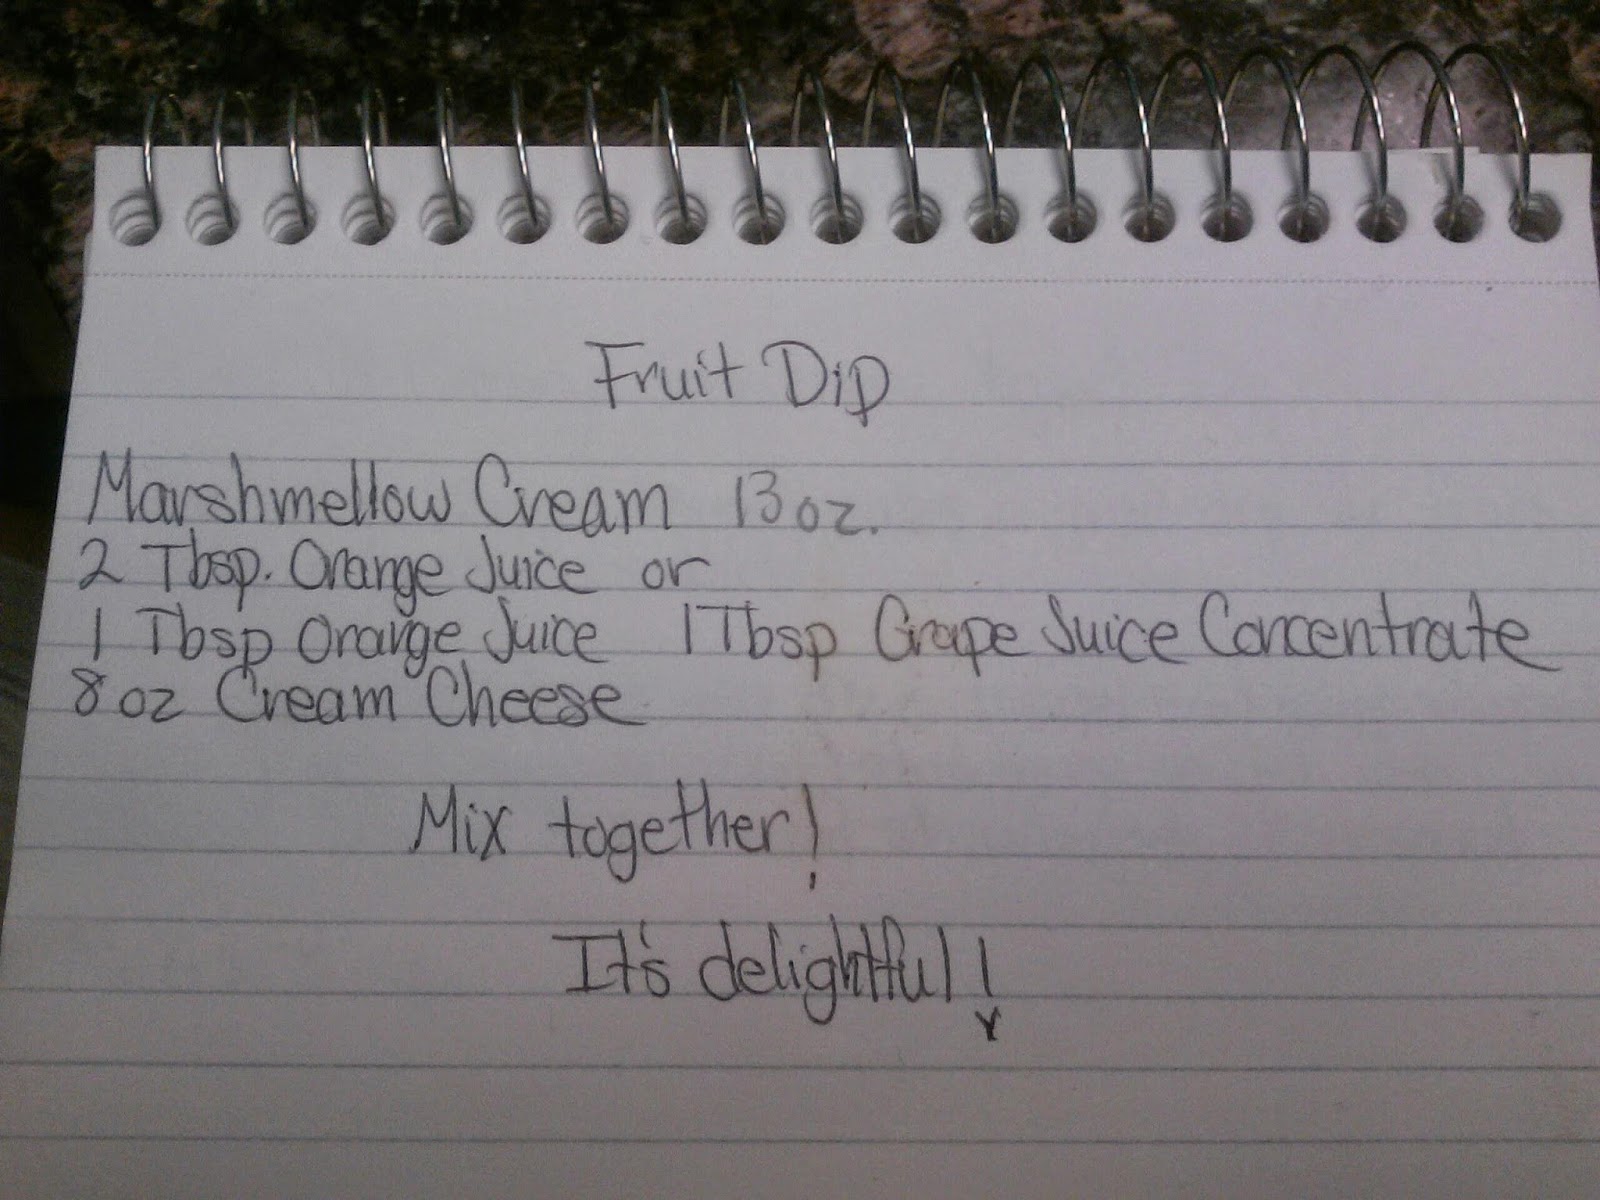 Fruit Dip
Marshmellow Cream 13 oz.
2 Tbsp. Orange Juice or
1 Tbsp Orange Juice 1 Tbsp Grape Juice Concentrate
8 oz Cream Cheese
Mix together!
It's delightful!